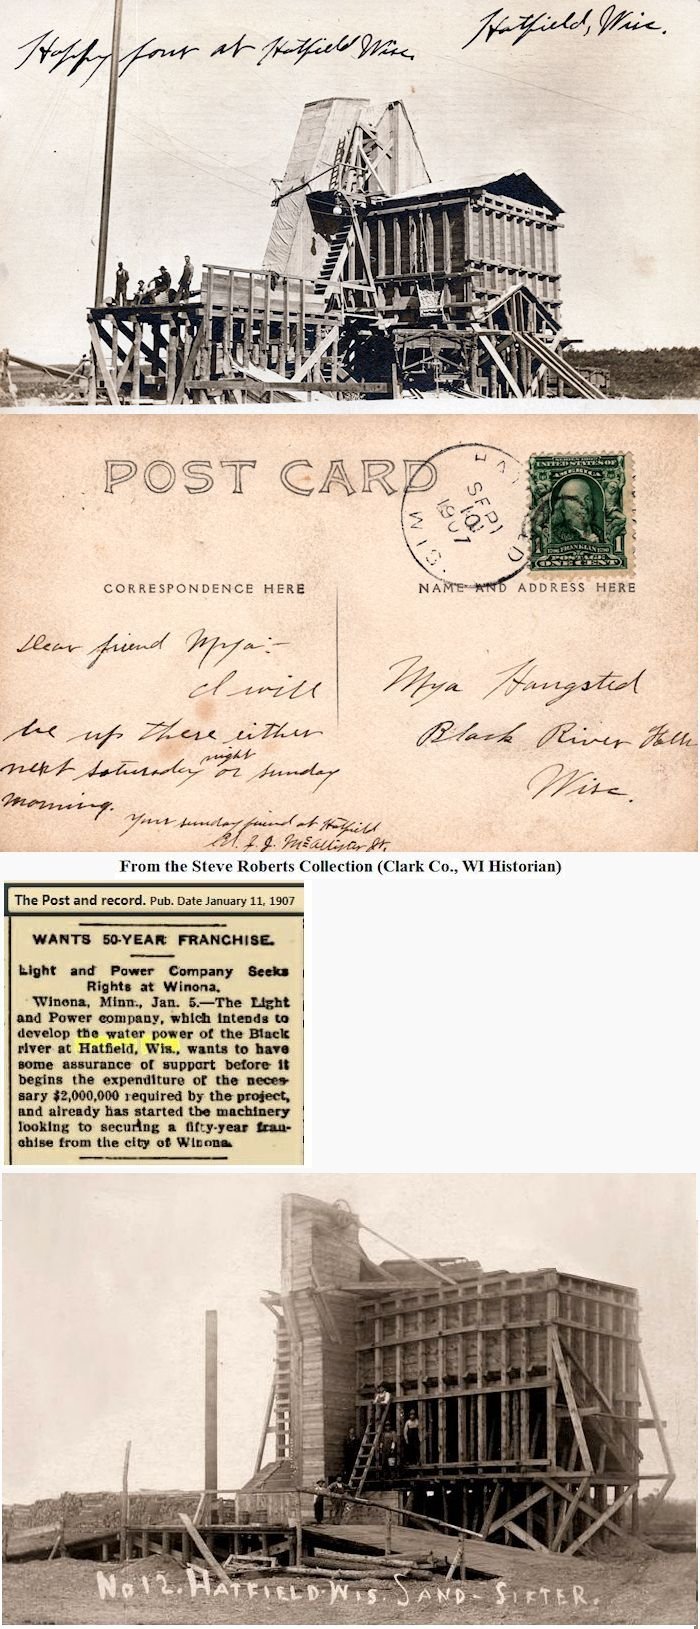 Hatfield, Wisc.
Happy four at Hatfield Wisc.
POST CARD
HATFIELD
SEP 10
1907
WIS.
SERIES 1902
UNITED STATES OF
AMERICA
1 FRANKLIN 1
POSTAGE
ONE CENT
CORRESPONDENCE HERE
NAME AND ADDRESS HERE
Dear friend Mya:-
I will
be up there either
next saturaday night or sunday
morning.
Your sunday friend at Hatfield
J. McAllister
Mya Haugsted
Black River Falls
Wisc.
From the Steve Roberts Collection (Clark Co., WI Historian)
The Post and record. Pub. Date January 11, 1907
WANTS 50-YEAR FRANCHISE.
Light and Power Company Seeks
Rights at Winona.
Winona, Minn., Jan. 5.—The Light
and Power company, which intends to
develop the water power of the Black
river at Hatfield, Wis., wants to have
some assurance of support before it
begins the expenditure of the neces-
sary $2,000,000 required by the project,
and already has started the machinery
looking to securing a fifty-year fran-
chise from the city of Winona.
No 12. HATFIELD-WIS. SAND-SIFTER.